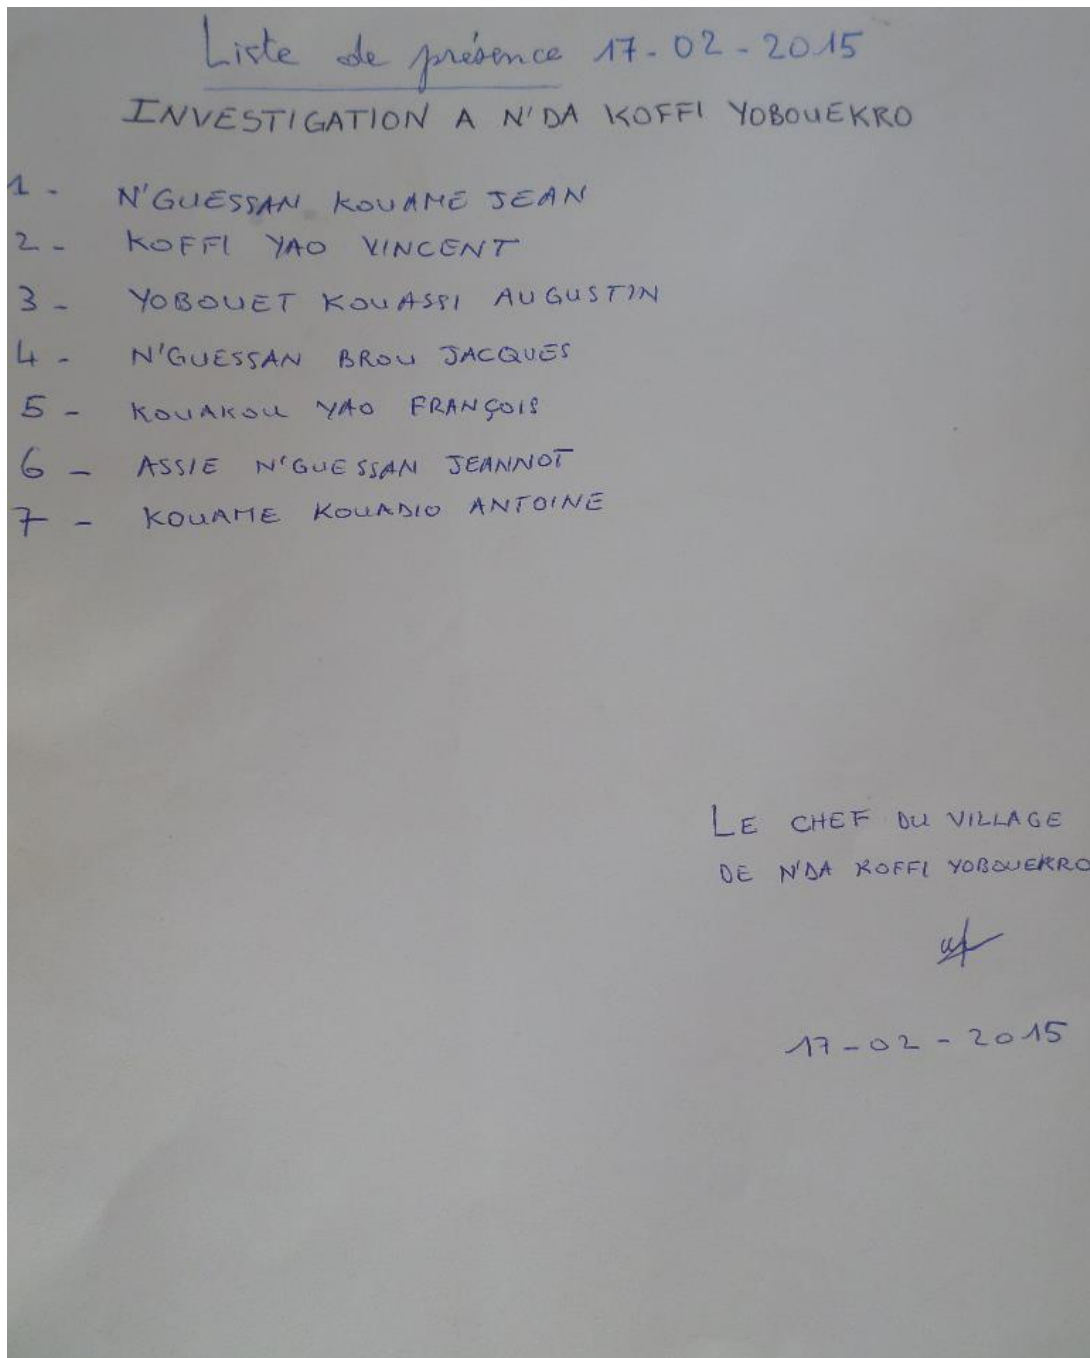 Liste de présence 17-02-2015
INVESTIGATION A N'DA KOFFI YOBOUEKRO
1 - N'GUESSAN KOUAME JEAN
2 - KOFFI YAO VINCENT
3 - YOBOUET KOUASSI AUGUSTIN
4 - N'GUESSAN BROU JACQUES
5 - KOUAKOU YAO FRANÇOIS
6 - ASSIE N'GUESSAN JEANNOT
7 - KOUAME KOUADIO ANTOINE
LE CHEF DU VILLAGE
DE N'DA KOFFI YOBOUEKRO
17-02-2015